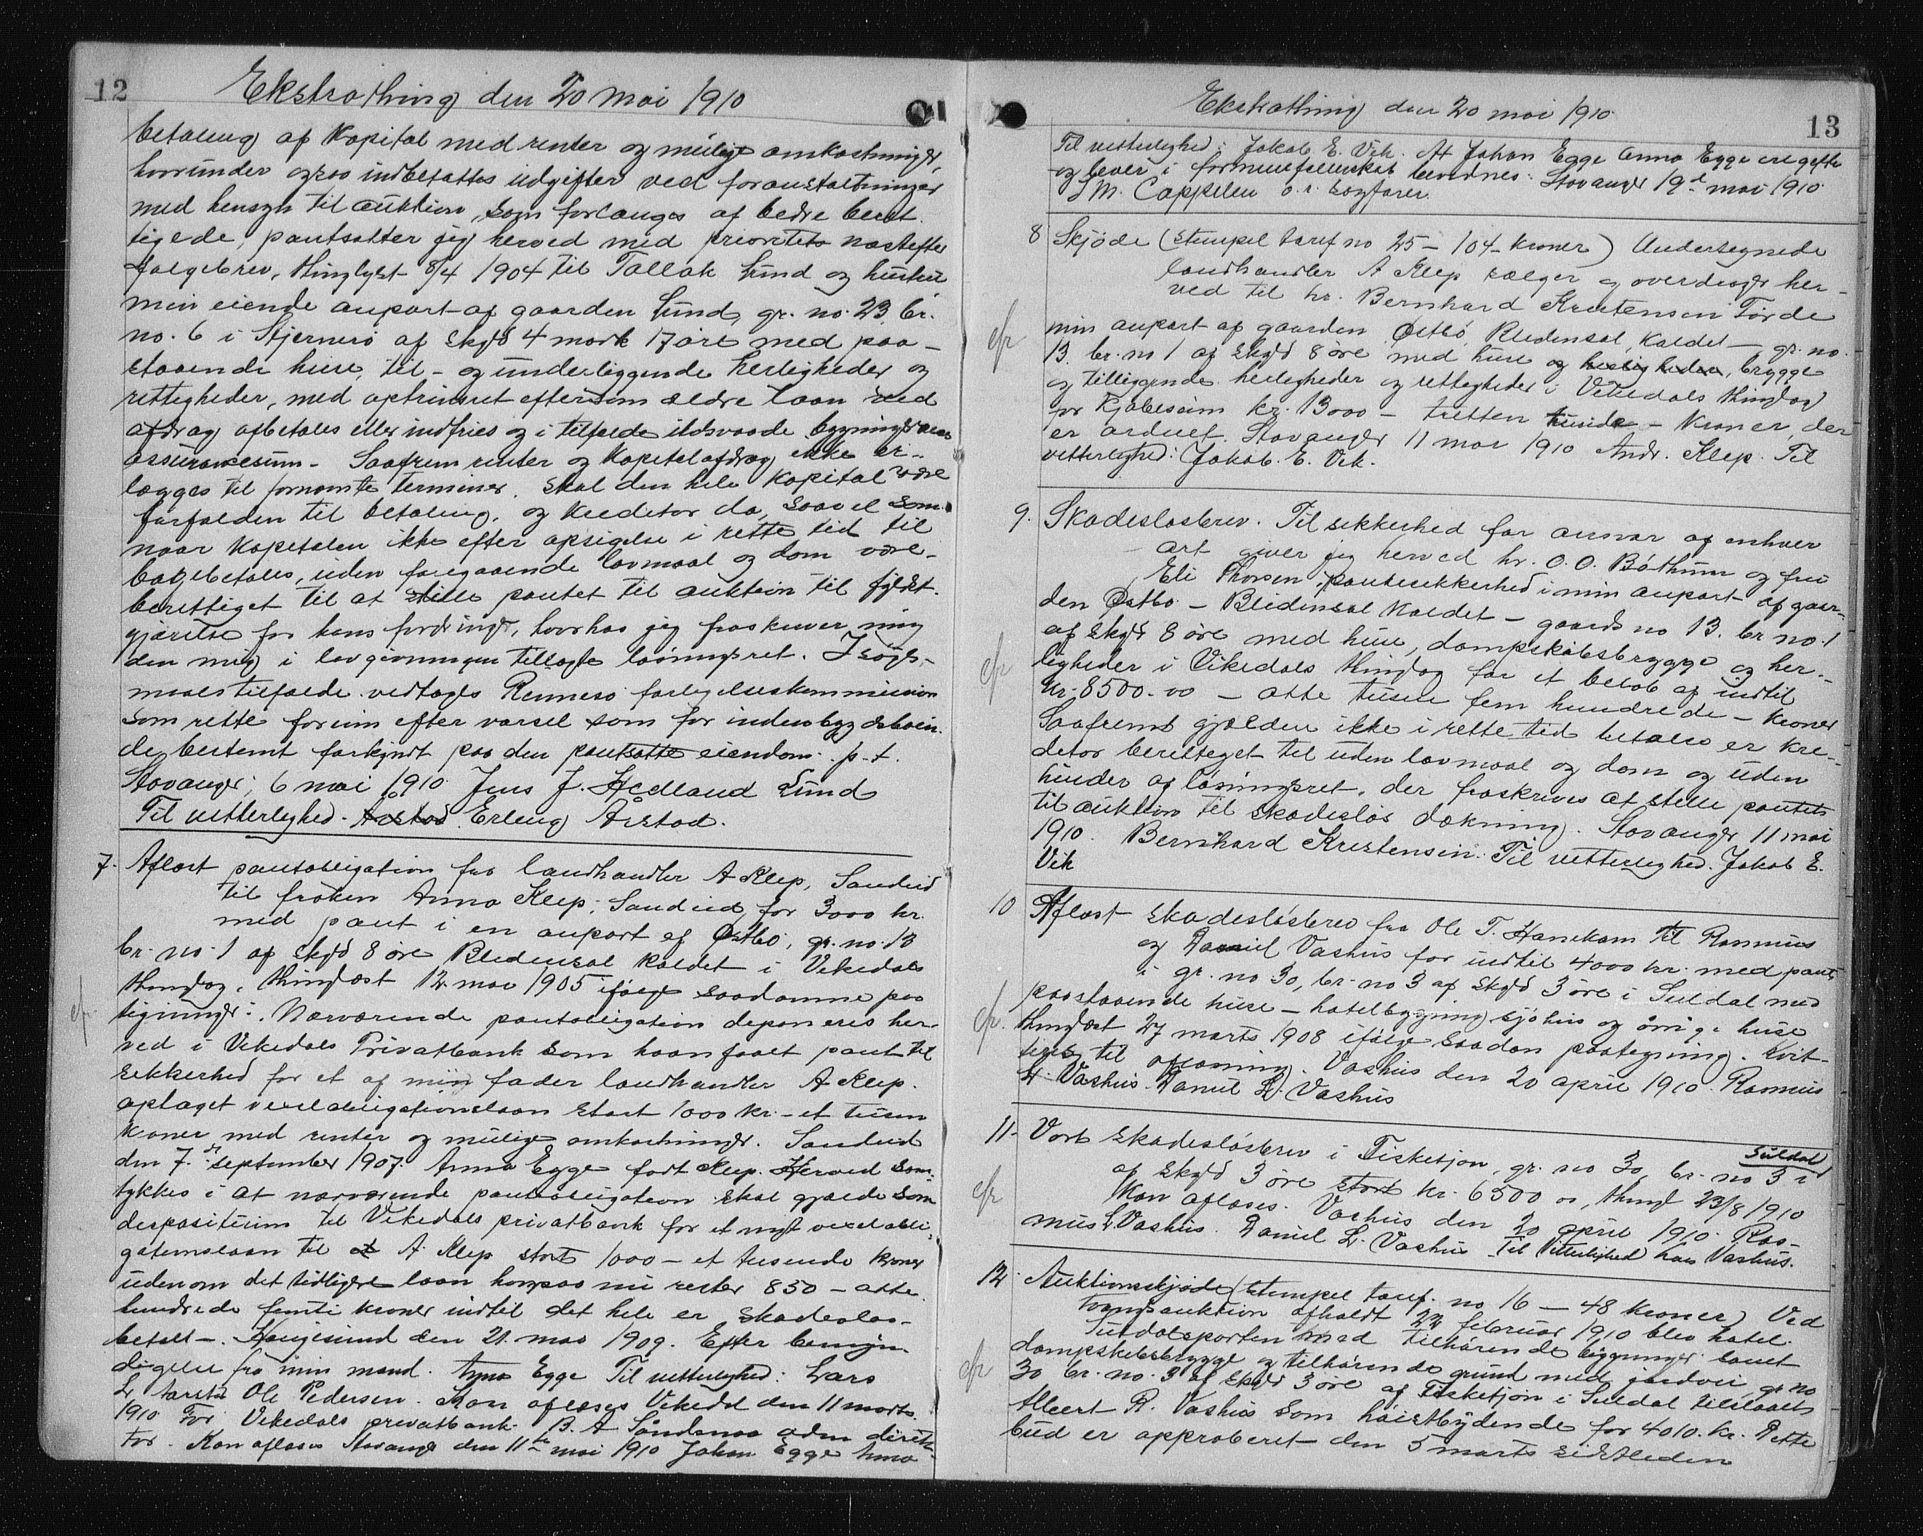 12
Ekstrathing den 20 mai 1910
betaling af Kapital med renter og mulige omkostninger,
hvorunder ogsaa indbefattes udgifter ved foranstaltninger
med hensyn til auktion, som forlanges af bedre beret-
tigede, pantsætter jeg herved med prioritets næstefter
følgebrev, thinglyst 8/4 1904 til Tollak Lund og hustru
min eiende anpart af gaarden Lund, gr. no. 23, br.
no. 6 i Stjernerø af skyld 4 mark 17 øre med paa-
staaende huse, til- og underliggende herligheder og
rettigheder, med optrinsret eftersom ældre laan ved
afdrag afbetales eller indfries og i tilfælde ildsvaade bygningernes
assurancesum. Saafremt renter og Kapitalafdrag ikke er-
lægges til fornævnte terminer, skal den hele Kapital være
forfalden til betaling, og kreditor da, saavel som
naar Kapitalen ikke efter opsigelse i rette tid til
bagebetales, uden foregaaende lovmaal og dom være
berettiget til at stille pantet til auktion til fyldest-
gjørelse for hans fordringer, hvorhos jeg fraskriver mig
den mig i lovgivningen tillagte løsningsret. I søgs-
maalstilfælde vedtages Rennesø forligelseskommission
som rette forum efter varsel som for indenbygdsboen-
de bestemt forkyndt paa den pantsatte eiendom. p. t.
Stavanger, 6 mai 1910 Jens J. Hedland Lund
Til vitterlighed. Årstad Erling Årstad.
7. Aflæst pantobligation fra landhandler A Klep, Sandeid
til frøken Anna Klep, Sandeid for 3000 kr.
med pant i en anpart af Østbø, gr. no. 13
br. no. 1 af skyld 8 øre Bledensal kaldet i Vikedals
cfr.
thinglag, thinglæst 12 mai 1905 ifølge saadanne paa
tegninger: Nærværende pantobligation deponeres her-
ved i Vikedals Privatbank som haandfaaet pant til
sikkerhed for et af min fader landhandler A Klep.
optaget vexelobligationslaan stort 1000 kr. - et tusen
kroner med renter og mulige omkostninger. Sandeid
den 7. september 1907. Anna Egge født Klep. Herved sam-
tykkes i at nærværende pantobligation skal gjælde som
depositum til Vikedals privatbank for et nyt vexelobli-
gationslaan til A. Klep stort 1000 - et tusende kroner
udenom det tidligere laan hvorpaa nu rester 850 - otte
hundrede femti kroner indtil det hele er skadesløs-
betalt -. Haugesund den 21. mai 1909. Efter bemyn-
digelse fra min mand. Anna Egge Til vitterlighed: Lars
L. Aarstu Ole Pedersen. Kan aflæses Vikedal den 11 marts
1910 For Vikedals privatbank. B. A Sandsnaa adm direk-
tør. Kan aflæses Stavanger den 11te mai 1910 Johan Egge Anna
13
Ekstrathing den 20 mai 1910
Til vitterlighed: Jakob E. Vik. At Johan Egge Anna Egge ere gifte
og lever i formuesfællesskab bevidnes. Stavanger 19d mai 1910
SM. Cappelen o. r. sagfører.
8 Skjøde (stempel taref no 25 - 104 - kroner) Undertegnede
landhandler A Klep sælger og overdrager her-
ved til hr. Bernhard Kristensen Førde
cfr
min anpart af gaarden Østbø, Bledensal kaldet - gr. no.
13. br. no 1 af skyld 8 øre med huse og herligheder, brygge
og tilliggende herligheder og rettigheder i Vikedals thinglag
for kjøbesum kr. 13000 - tretten tusinde - Kroner, der
er ordnet. Stavanger 11 mai 1910 Andr. Klep. Til
vitterlighed: Jakob. E. Vik.
9. Skadesløsbrev. Til sikkerhed for ansvar af enhver
art giver jeg herved hr. O. O. Bøthun og fru
Eli Thorsen pantesikkerhed i min anpart af gaar-
den Østbø - Bledensal kaldet - gaards no 13. br no. 1
cfr
af skyld 8 øre med huse, dampskibsbrygge og her-
ligheder i Vikedals thinglag for et beløb af indtil
kr. 8500.00 - otte tusen fem hundrede - kroner
Saafremt gjælden ikke i rette tid betales er kre-
ditor berettiget til uden lovmaal og dom og uden
hinder af løsningsret, der fraskrives at stille pantet
til auktion til skadesløs dækning. Stavanger 11 mai
1910. Bernhard Kristensen. Til vitterlighed. Jakob E.
Vik
10 Aflæst skadesløsbrev fra Ole T. Hanekam til Rasmus
og Daniel Vashus for indtil 4000 kr. med pant
i gr. no 30, br. no 3 af skyld 3 øre i Suldal med
cfr.
paastaaende huse - hotelbygning sjøhus og øvrige huse
thinglæst 27 marts 1908 ifølge saadan paategning. Kvit-
teres til aflæsning. Vashus den 20 april 1910. Rasmus
L. Vashus. Daniel L. Vashus
11. Vort skadesløsbrev i Fisketjøn, gr. no 30, br. no 3 i
Suldal
af skyld 3 øre stort kr. 6500 00, thingl 23/8 1910
cfr
Kan aflæses. Vashus den 20 april 1910. Ras-
mus L Vashus. Daniel L. Vashus Til vitterlighed Lars Vashus.
12. Auktionsskjøde (stempel taref. no 16 - 48 kroner) Ved
tvangsauktion afholdt 22 februar 1910 blev hotel
Suldalsporten med tilhørende bygninger samt
cfr
dampskibsbrygge og tilhørende grund med jordvei gr no
30 br. no. 3 af skyld 3 øre af Fisketjøn i Suldal tilslaaet
Albert R. Vashus som høistbydende for 4010. kr. Dette
bud er approberet den 5 marts sidstleden